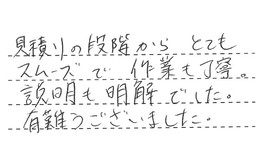 見積りの段階から とても
スムーズで 作業も丁寧。
説明も 明解でした。
有難うございました。